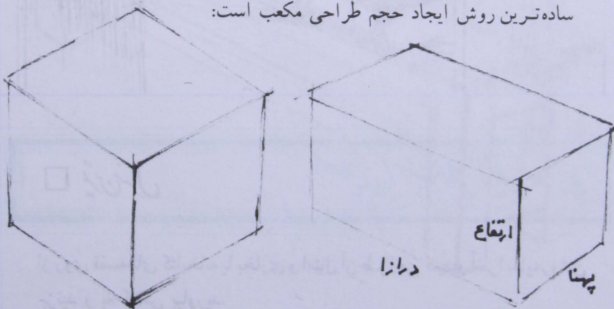 ساده‌ترین روش ایجاد حجم طراحی مکعب است:
ارتفاع
درازا
پهنا